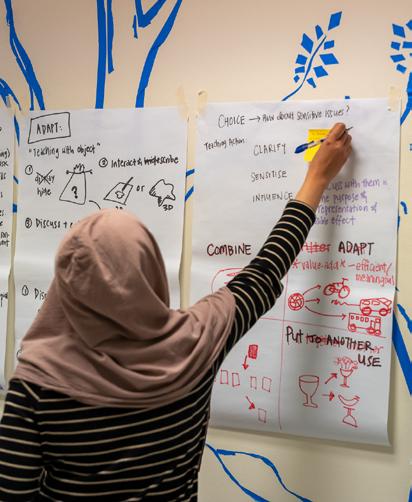 ADAPT:
"Teaching with object"
①
hide
?
② Interact &
or
3D
② Discuss +
③ Disc
CHOICE → How about sensitive issues?
Teaching Action:
CLARIFY
SENSITISE
INFLUENCE
cuss with them
e purpose &
representation of
effect
COMBINE
ADAPT
value-add → efficient/
meaningful
Put to ANOTHER
USE